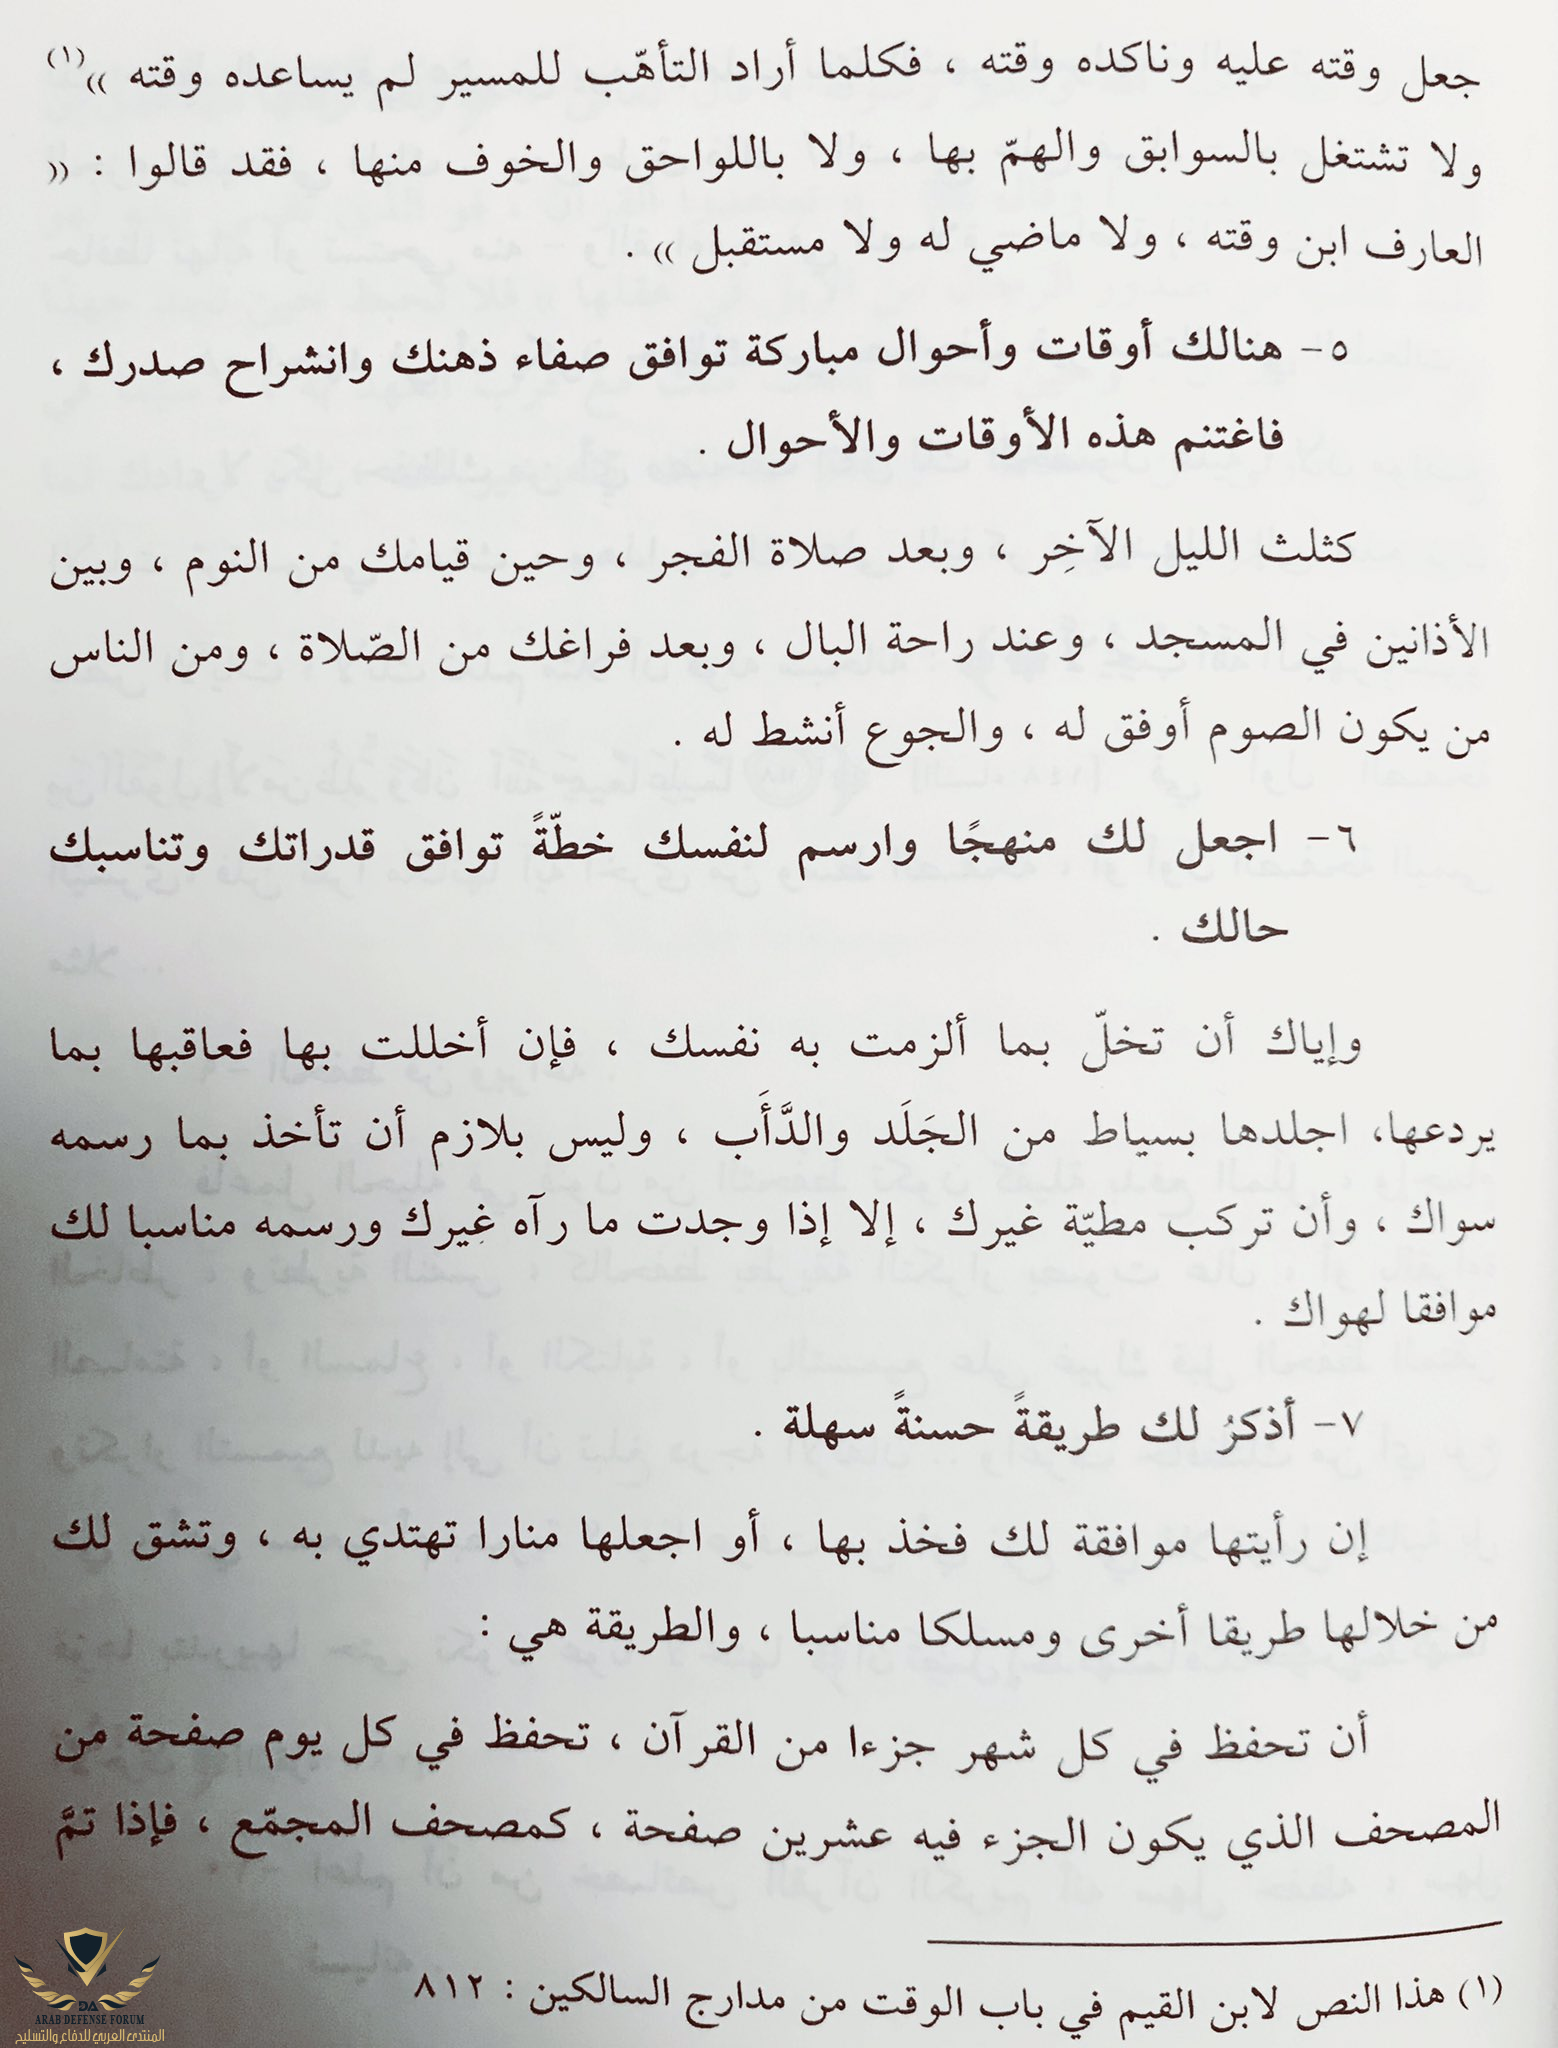 جعل وقته عليه وناكده وقته ، فكلما أراد التأهّب للمسير لم يساعده وقته »(١)
ولا تشتغل بالسوابق والهمّ بها ، ولا باللواحق والخوف منها ، فقد قالوا : «
العارف ابن وقته ، ولا ماضي له ولا مستقبل » .
٥- هنالك أوقات وأحوال مباركة توافق صفاء ذهنك وانشراح صدرك ،
فاغتنم هذه الأوقات والأحوال .
كثلث الليل الآخِر ، وبعد صلاة الفجر ، وحين قيامك من النوم ، وبين
الأذانين في المسجد ، وعند راحة البال ، وبعد فراغك من الصّلاة ، ومن الناس
من يكون الصوم أوفق له ، والجوع أنشط له .
٦- اجعل لك منهجًا وارسم لنفسك خطّةً توافق قدراتك وتناسبك
حالك .
وإياك أن تخلّ بما ألزمت به نفسك ، فإن أخللت بها فعاقبها بما
يردعها، اجلدها بسياط من الجَلَد والدَّأَب ، وليس بلازم أن تأخذ بما رسمه
سواك ، وأن تركب مطيّة غيرك ، إلا إذا وجدت ما رآه غِيرك ورسمه مناسبا لك
موافقا لهواك .
٧- أذكرُ لك طريقةً حسنةً سهلة .
إن رأيتها موافقة لك فخذ بها ، أو اجعلها منارا تهتدي به ، وتشق لك
من خلالها طريقا أخرى ومسلكا مناسبا ، والطريقة هي :
أن تحفظ في كل شهر جزءا من القرآن ، تحفظ في كل يوم صفحة من
المصحف الذي يكون الجزء فيه عشرين صفحة ، كمصحف المجمّع ، فإذا تمَّ
(١) هذا النص لابن القيم في باب الوقت من مدارج السالكين : ٨١٢
DA
ARAB DEFENSE FORUM
المنتدى العربي للدفاع والتسليح